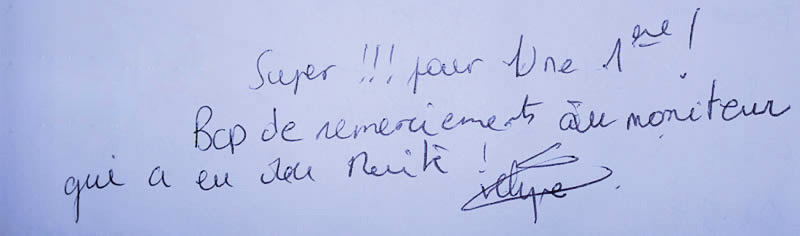 Super !!! pour Une 1ère !
Bcp de remerciements au moniteur
qui a eu du mérite !